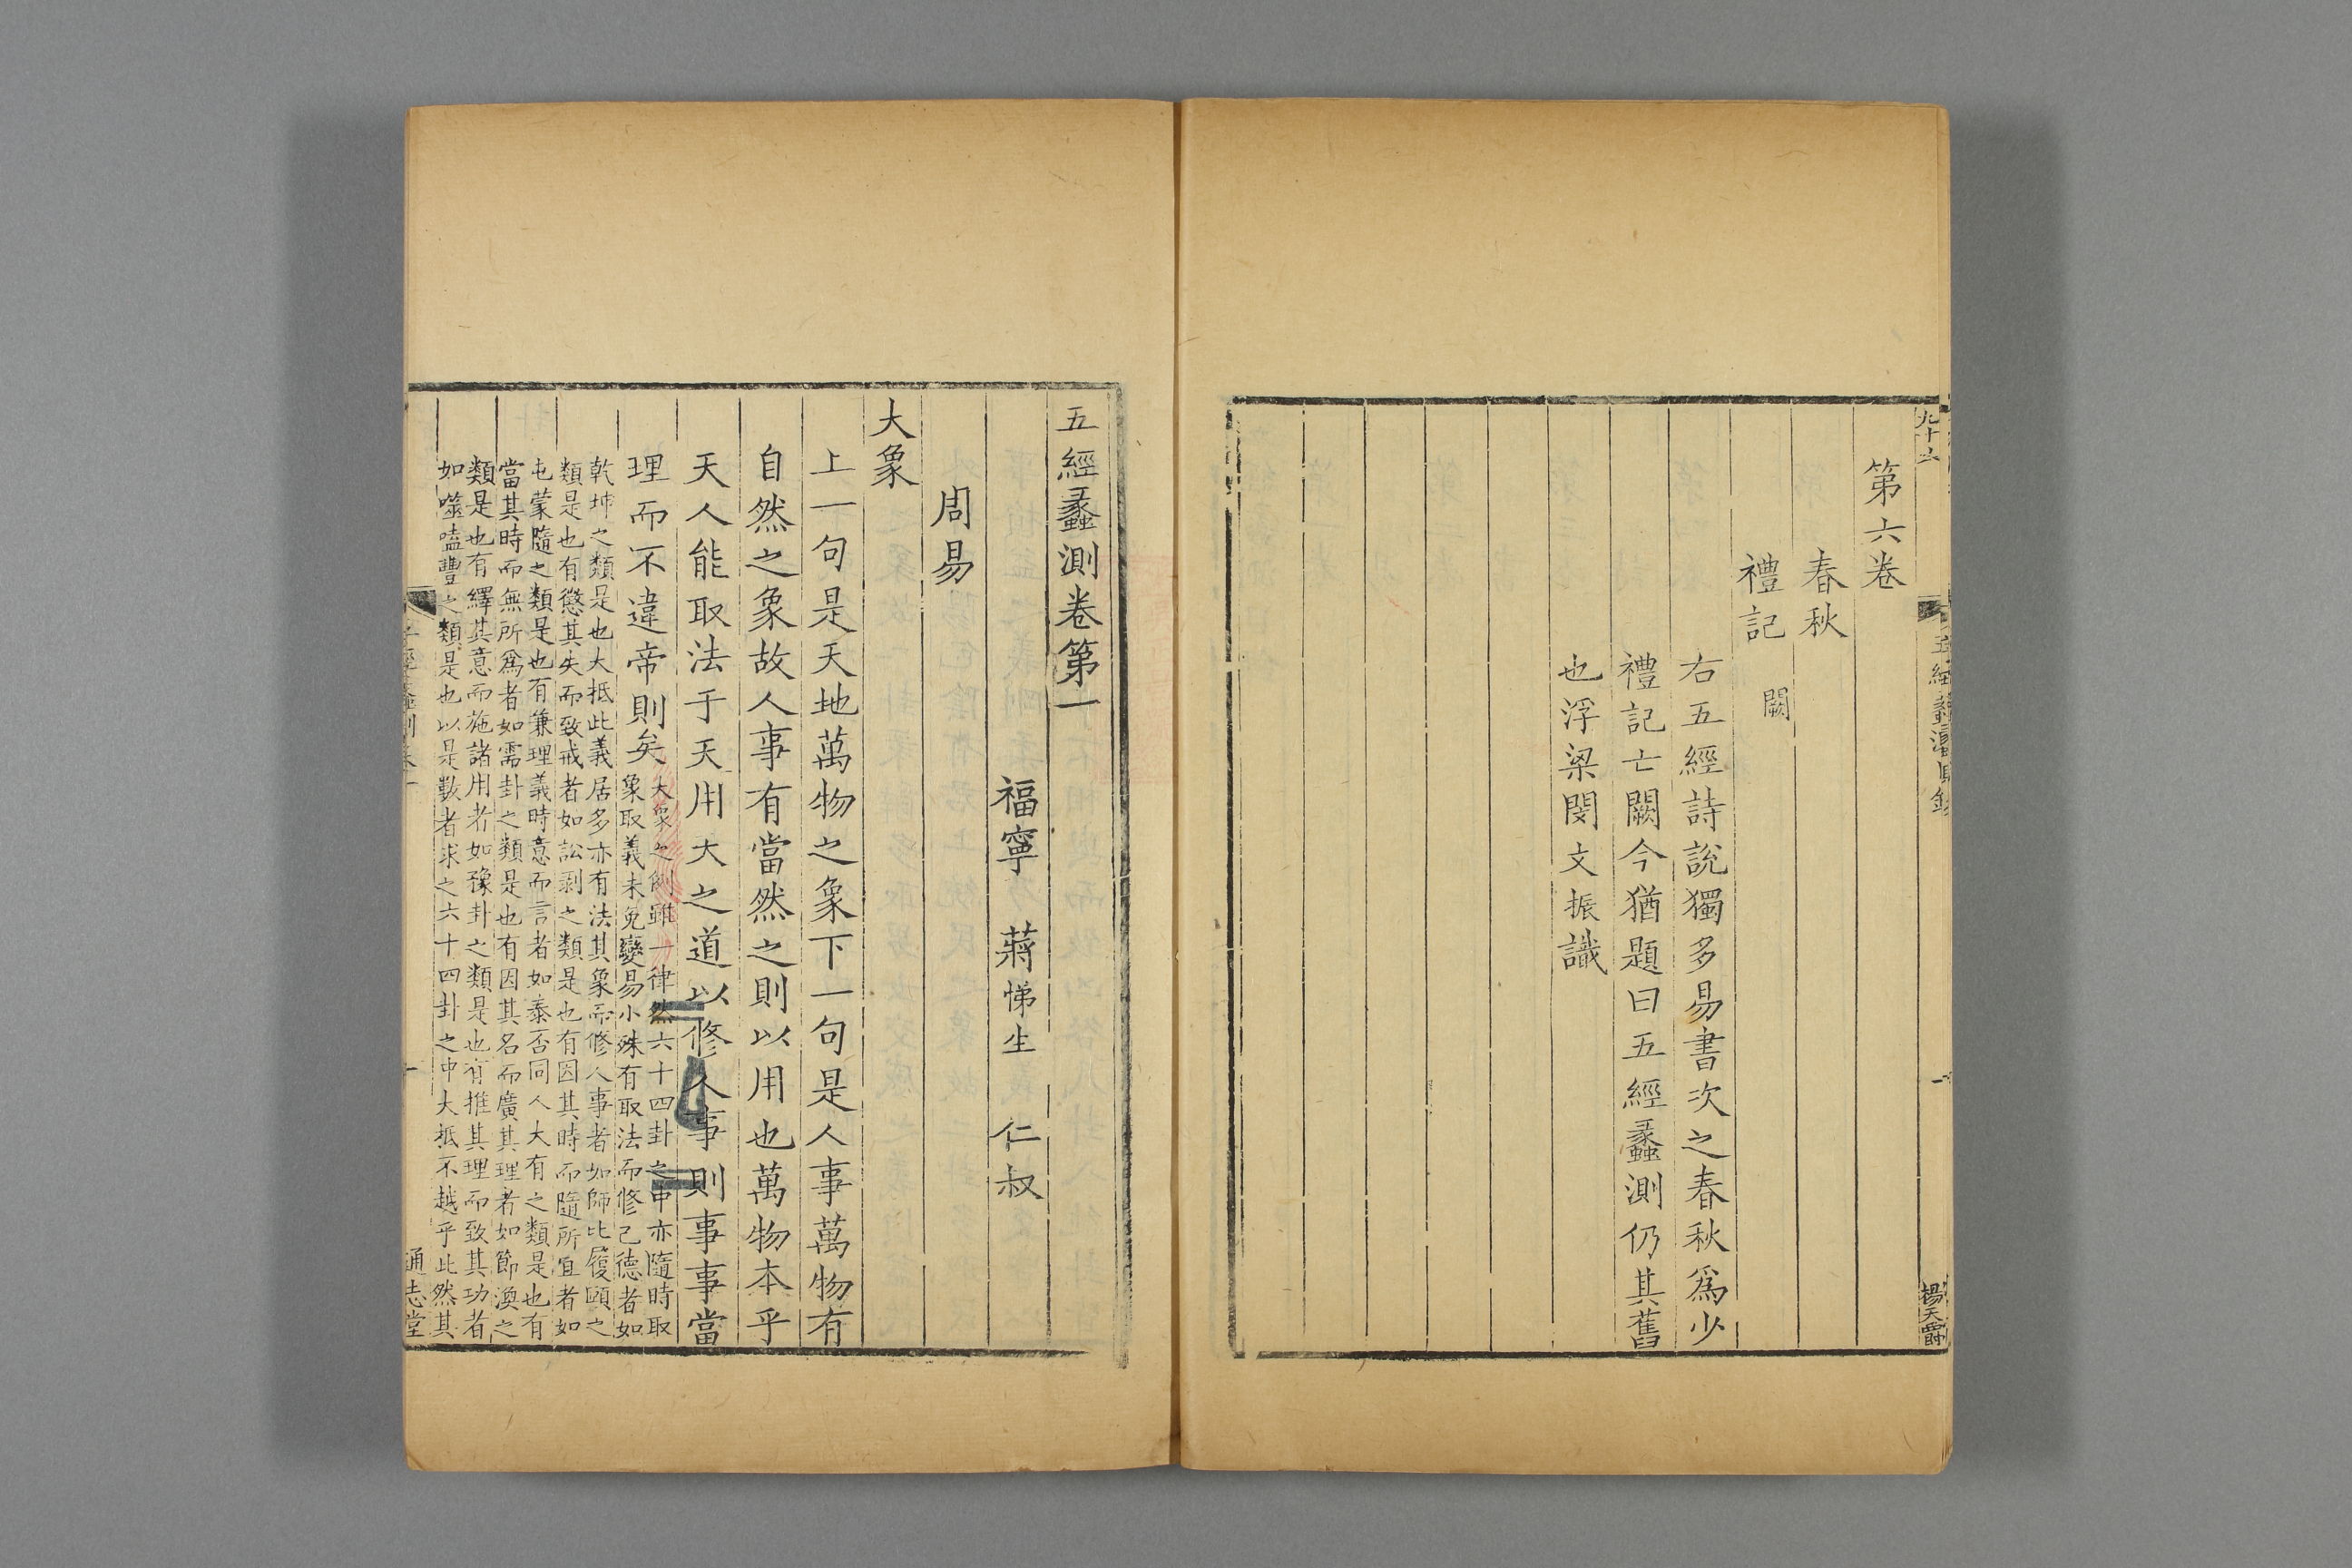 九十六
五經蠡測目錄
一
楊天爵
第六卷
春秋
禮記 闕
右五經詩說獨多易書次之春秋爲少
禮記亡闕今猶題曰五經蠡測仍其舊
也浮梁閔文振識
五經蠡測卷第一
福寧 蔣悌生 仁叔
周易
大象
上一句是天地萬物之象下一句是人事萬物有
自然之象故人事有當然之則以用也萬物本乎
天人能取法于天用大之道以修人事則事事當
理而不違帝則矣
大象之例雖一律然六十四卦之中亦隨時取
象取義未免變易小殊有取法而修己德者如
乾坤之類是也大抵此義居多亦有法其象而修人事者如師比履頤之
類是也有懲其失而致戒者如訟剥之類是也有因其時而隨所宜者如
屯蒙隨之類是也有兼理義時意而言者如泰否同人大有之類是也有
當其時而無所爲者如需卦之類是也有因其名而廣其理者如節渙之
類是也有繹其意而施諸用者如豫卦之類是也有推其理而致其功者
如噬嗑豐之類是也以是數者求之六十四卦之中大抵不越乎此然其
五經蠡測卷一
一
通志堂